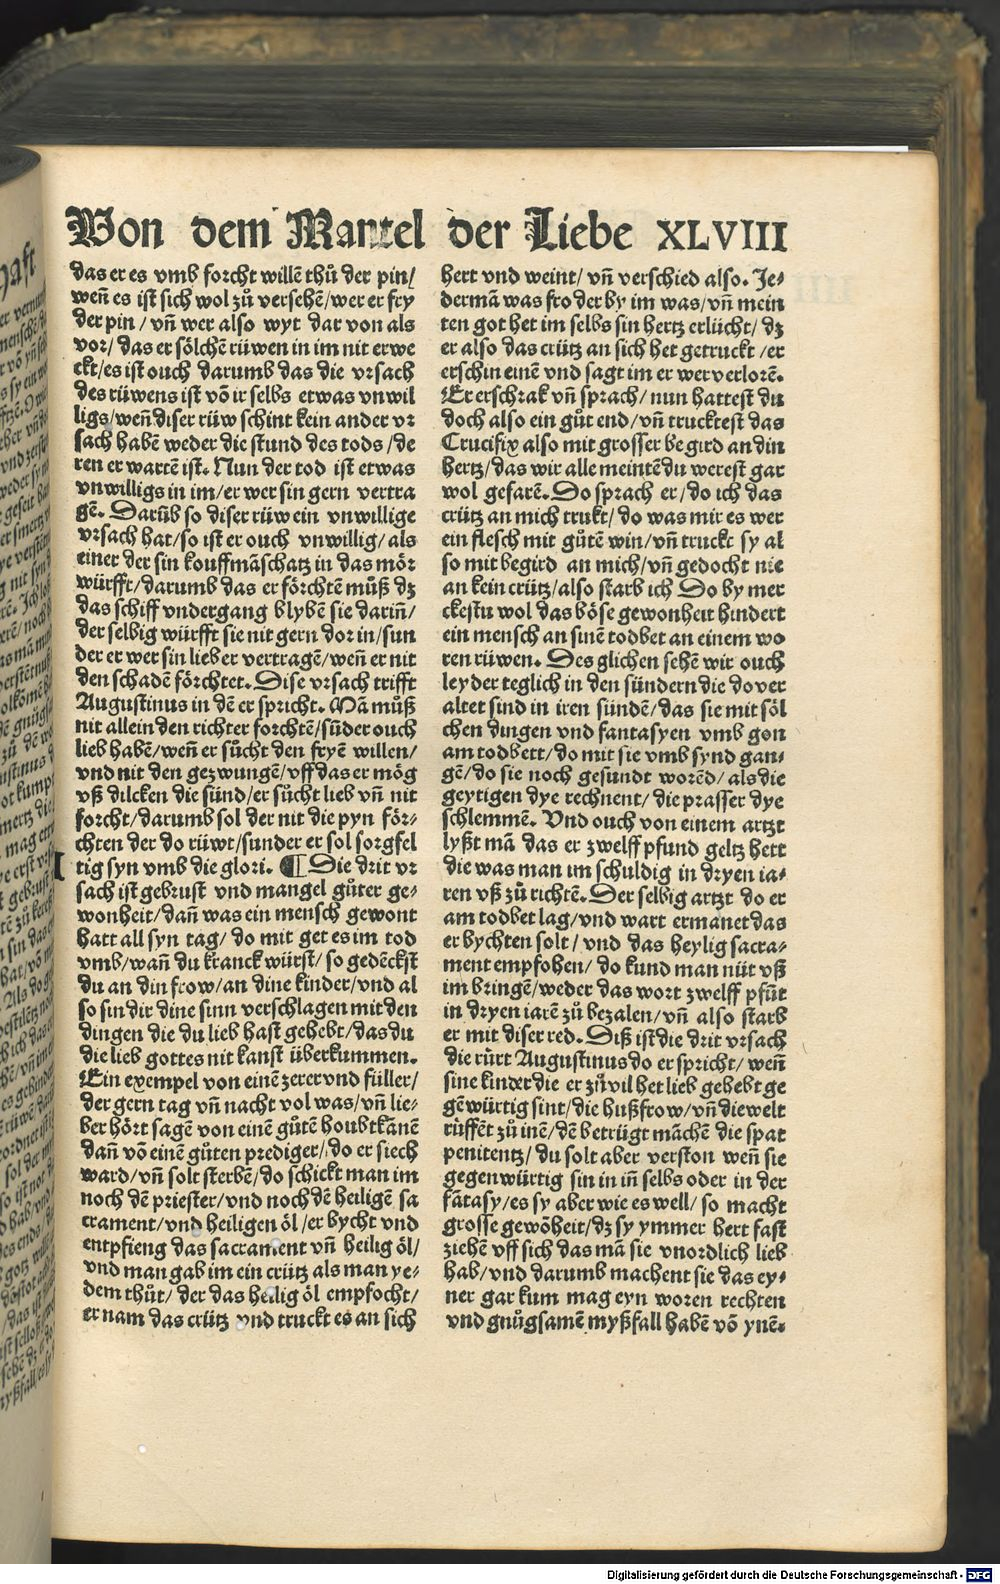 Von dem Mantel der Liebe XLVIII
das er es vmb forcht willē thů der pin/
weñ es ist sich wol zů versehē/wer er fry
der pin/ vñ wer also wyt dar von als
vor/ das er sölchē rüwen in im nit erwe
ckt/es ist ouch darumb das die vrsach
des rüwens ist vō ir selbs etwas vnwil
ligs/weñ diser rüw schint kein ander vr
sach habē weder die stund des tods/de
ren er wartē ist. Nun der tod ist etwas
vnwilligs in im/er wer sin gern vertra
gē. Darūb so diser rüw ein vnwillige
vrsach hat/so ist er ouch vnwillig/als
einer der sin kouffmāschatz in das mör
würfft/darumb das er förchtē můß dz
das schiff vndergang blybē sie dariñ/
der selbig würfft sie nit gern dor in/sun
der er wer sin lieber vertragē/weñ er nit
den schadē förchtet. Dise vrsach trifft
Augustinus in dē er spricht. Mā můß
nit allein den richter forchtē/sūder ouch
lieb habē/weñ er sůcht den fryē willen/
vnd nit den gezwungē/vff das er mög
vß dilcken die sünd/er sůcht lieb vñ nit
forcht/darumb sol der nit die pyn för-
chten der do rüwt/sunder er sol sorgfel
tig syn vmb die glori. ¶ Die drit vr
sach ist gebrust vnd mangel gůter ge-
wonheit/dañ was ein mensch gewont
hatt all syn tag/ do mit get es im tod
vmb/wañ du kranck würst/ so gedēckst
du an din frow/an dine kinder/vnd al
so sin dir dine sinn verschlagen mit den
dingen die du lieb hast gehebt/das du
die lieb gottes nit kanst überkummen.
Ein exempel von einē zerer vnd füller/
der gern tag vñ nacht vol was/vñ lie-
ber hört sagē von einē gůtē houbtkanē
dañ vō einē gůten prediger/do er siech
ward/vñ solt sterbē/do schickt man im
noch dē priester/vnd noch dē heiligē sa
crament/vnd heiligen öl/er bycht vnd
entpfieng das sacrament vñ heilig öl/
vnd man gab im ein crütz als man ye-
dem thůt/ der das heilig öl empfocht/
er nam das crütz vnd truckt es an sich
hert vnd weint/ vñ verschied also. Je-
dermā was fro der by im was/vñ mein
ten got het im selbs sin hertz erlücht/ dz
er also das crütz an sich het getruckt/er
erschin einē vnd sagt im er wer verlorē.
Er erschrak vñ sprach/ nun hattest du
doch also ein gůt end/vñ trucktest das
Crucifix also mit grosser begird an din
hertz/das wir alle meintē du werest gar
wol gefarē. Do sprach er/do ich das
crütz an mich trukt/ do was mir es wer
ein flesch mit gůtē win/vñ truckt sy al
so mit begird an mich/vñ gedocht nie
an kein crütz/also starb ich Do by mer
ckestu wol das böse gewonheit hindert
ein mensch an sinē todbet an einem wo
ren rüwen. Des glichen sehē wir ouch
leyder teglich in den sündern die do ver
altet sind in iren sündē/das sie mit söl
chen dingen vnd fantasyen vmb gon
am todbett/do mit sie vmb synd gan-
gē/do sie noch gesundt worēd/als die
geytigen dye rechnent/die prasser dye
schlemmē. Vnd ouch von einem artzt
lyßt mā das er zwelff pfund geltz hett
die was man im schuldig in dryen ia-
ren vß zů richtē. Der selbig artzt do er
am todbet lag/vnd wart ermanet das
er bychten solt/ vnd das heylig sacra-
ment empfohen/ do kund man nüt vß
im bringē/weder das wort zwelff pfūt
in dryen iarē zů bezalen/vñ also starb
er mit diser red. Diß ist die drit vrsach
die rürt Augustinus do er spricht/ weñ
sine kinder die er zů vil het lieb gehebt ge
gēwürtig sint/die hußfrow/vñ die welt
rüffēt zů inē/dē betrügt māchē die spat
penitentz/du solt aber verston weñ sie
gegenwürtig sin in iñ selbs oder in der
fātasy/es sy aber wie es well/ so macht
grosse gewōheit/dz sy ymmer hert fast
ziehē vff sich das mā sie vnordlich lieb
hab/vnd darumb machent sie das ey-
ner gar kum mag eyn woren rechten
vnd gnůgsamē myßfall habē vō ynē.
Digitalisierung gefördert durch die Deutsche Forschungsgemeinschaft - DFG